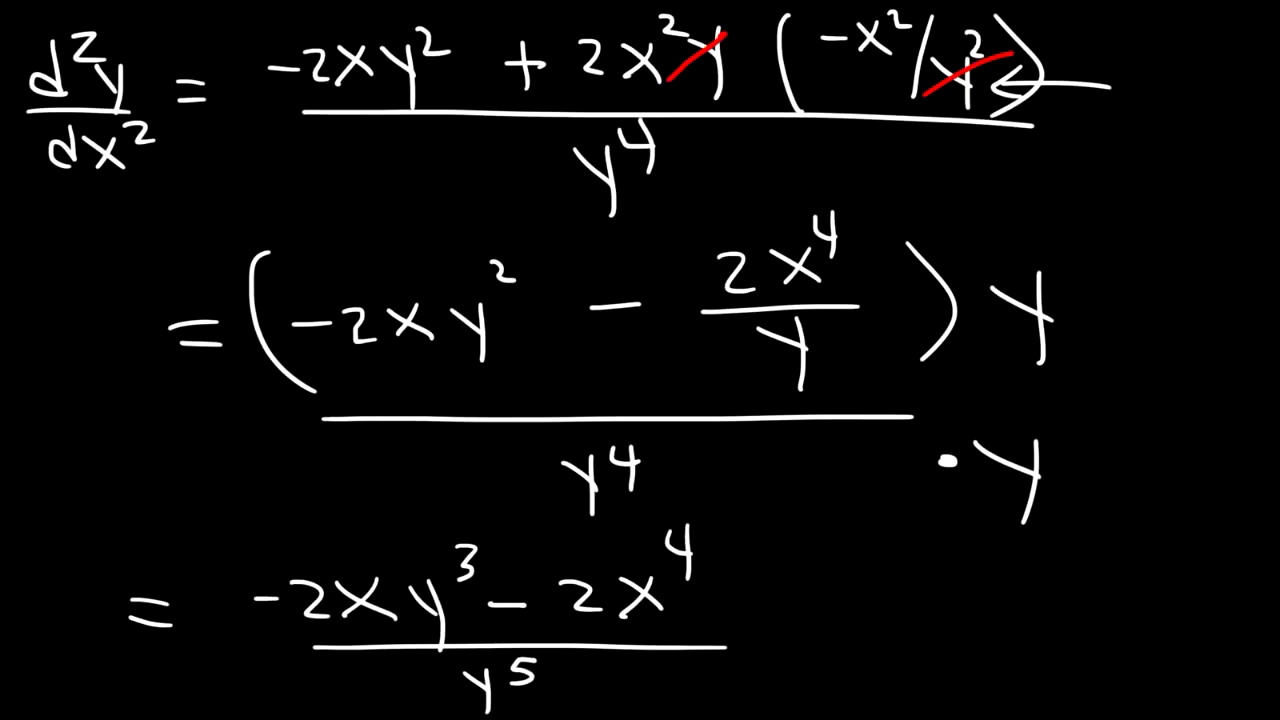 d²y/dx² = (-2xy² + 2x²y (-x²/y²)) / y⁴
= (-2xy² - 2x⁴/y) y / y⁴ · y
= (-2xy³ - 2x⁴) / y⁵